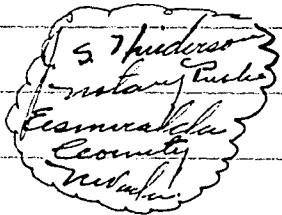 S. Hinderson
Notary Public
Esmeralda
County
Nevada.